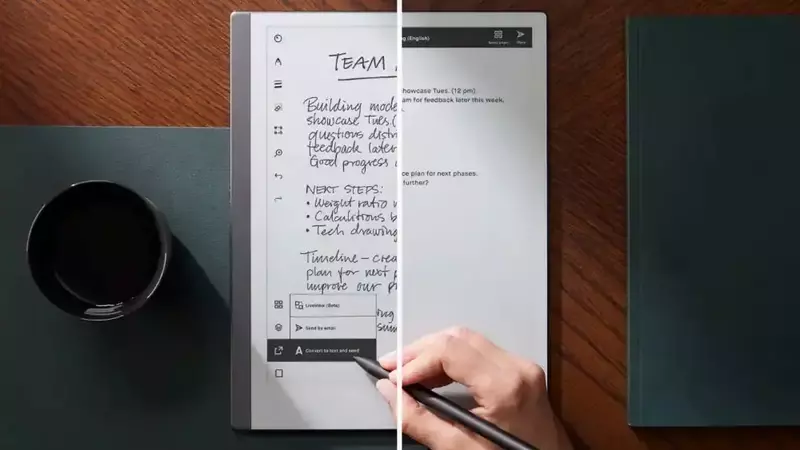 TEAM
Building mode
showcase Tues.(
questions distr
feedback later
Good progress
NEXT STEPS:
• Weight ratio
• Calculations b
• Tech drawing
Timeline – crea
plan for next p
improve our pr
LiveView (Beta)
Send by email
Convert to text and send
(English)
howcase Tues. (12 pm)
am for feedback later this week.
ce plan for next phases.
further?